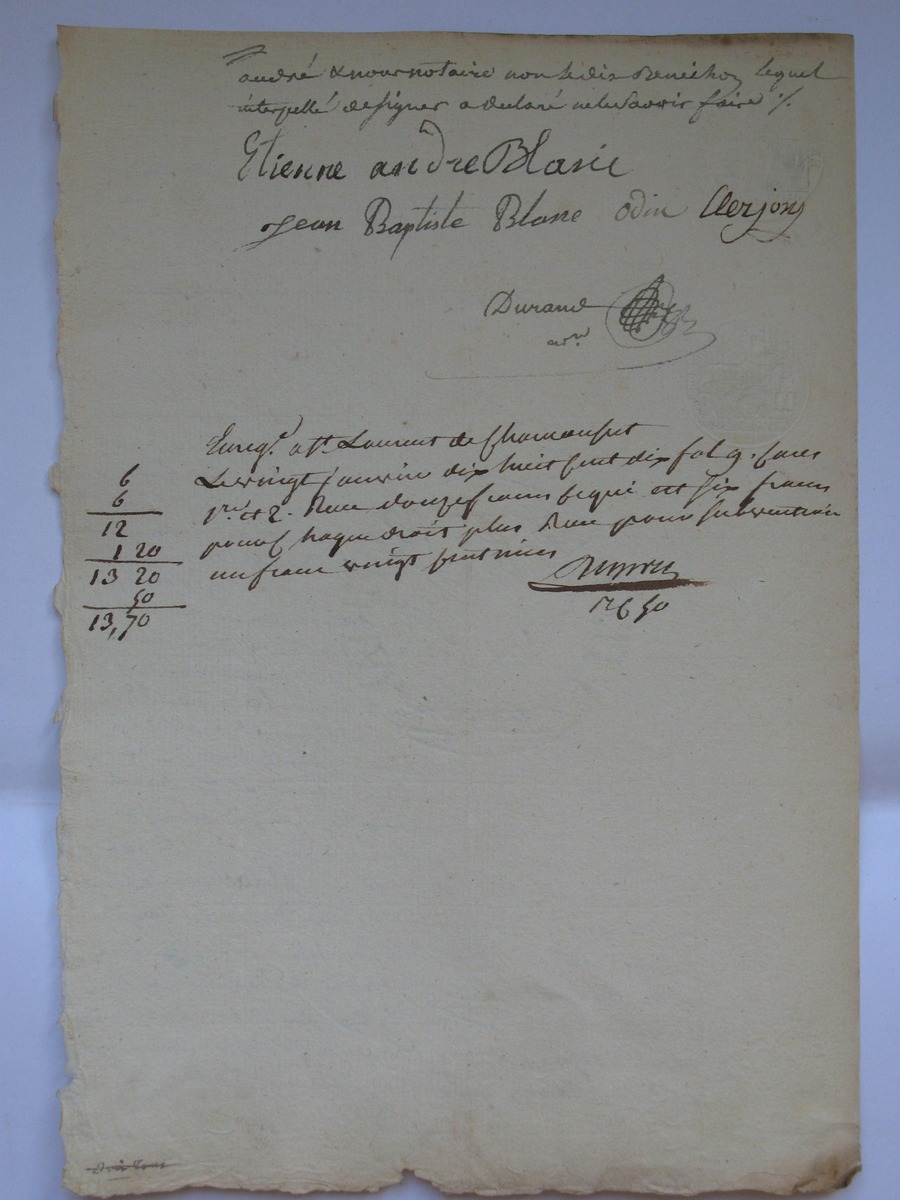 andré & nous notaire non ledit Benéchoz lequel
interpellé de signer a declaré ne le savoir faire ./.
Etienne andre Blanc
Jean Baptiste Blanc odin Clerjon
Durand
no.re
Enreg. a st. Laurent de Chamousset
Le vingt janvier dix huit cent dix fol 9. cases
1re et 2. Recu douze francs ce qui est six francs
pour chaque droit plus Recu pour subvention
un franc vingt centimes
6
6
12
1 20
13 20
50
13,70